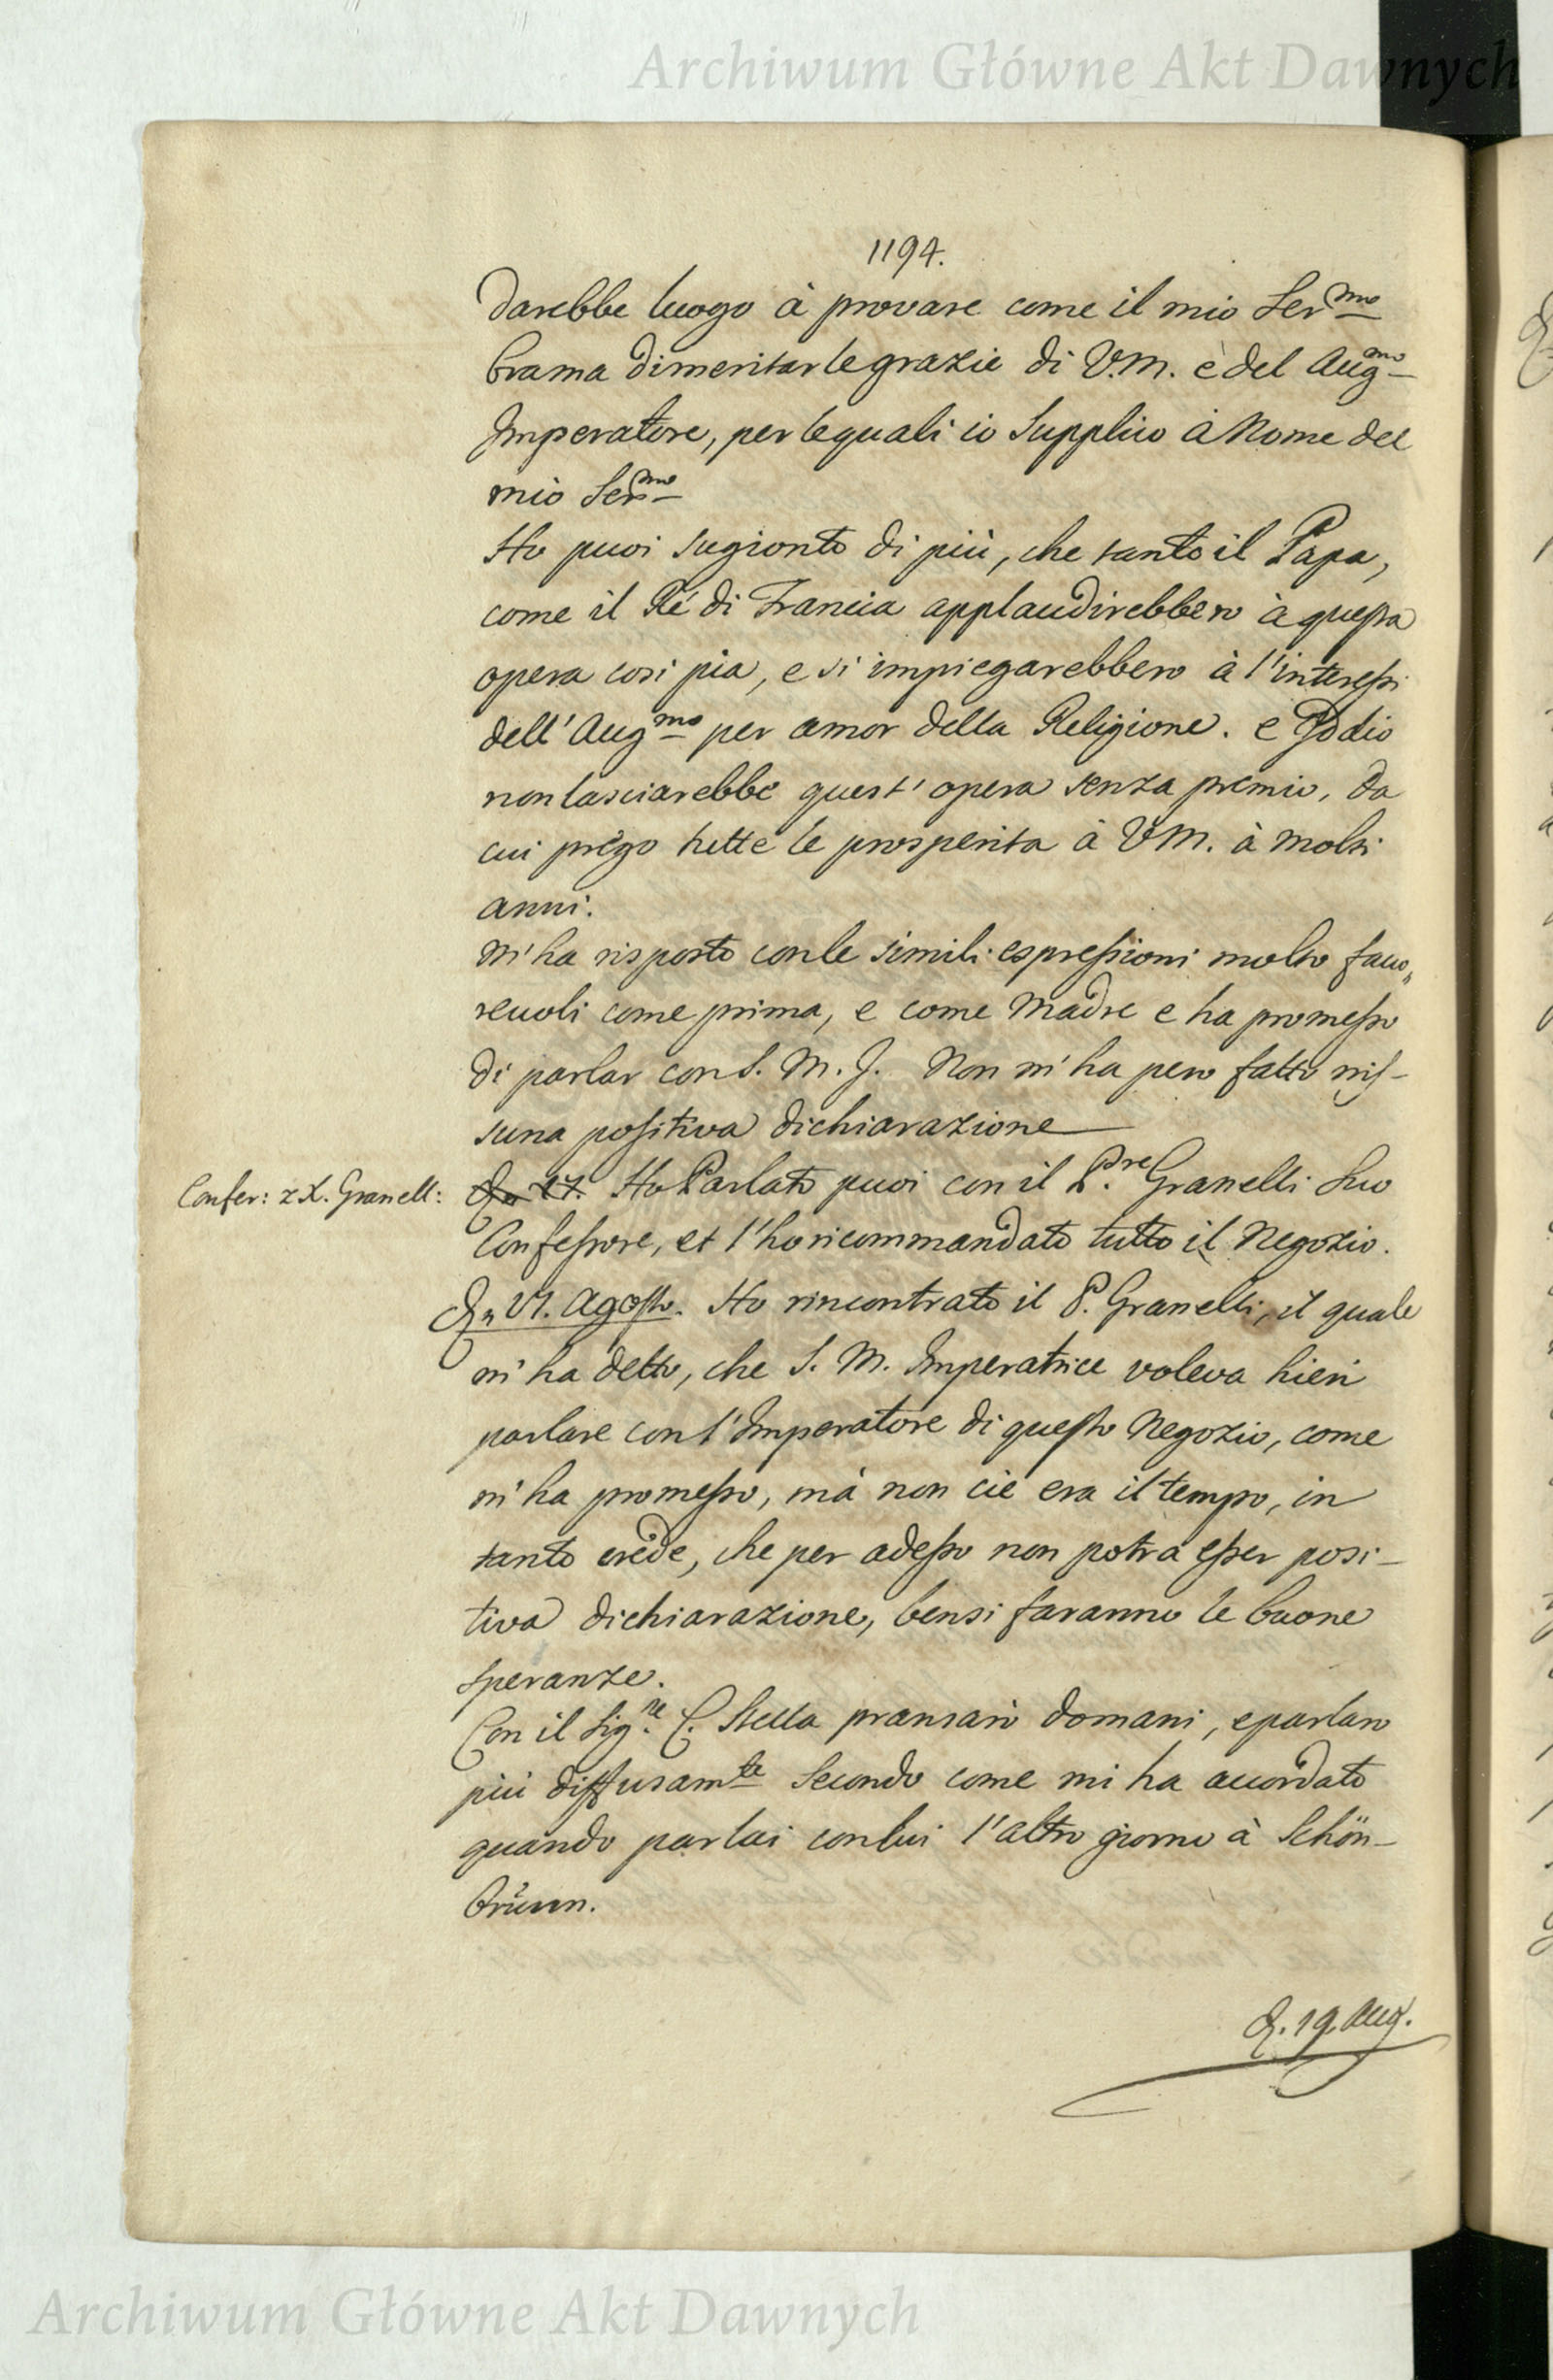 Archiwum Główne Akt Dawnych
1194.
darebbe luogo à provare come il mio Ser^mo
brama dimeritar le grazie di V.M. è del Aug^mo
Imperatore, per le quali io Supplico à Nome del
mio Ser^mo
Ho puoi sugionto di più, che tanto il Papa,
come il Ré di Francia applaudirebbero à questa
opera cosi pia, e si impiegarebbero à l'interessi
dell' Aug^mo per amor della Religione. e Iddio
non lasciarebbe quest' opera senza premio, da
cui prego tutte le prosperita à VM. à molti
anni.
M'ha risposto conle simili espressioni molto favo„
revoli come prima, e come Madre e ha promesso
di parlar con S. M. I. Non m'ha pero fatto nis-
suna positiva dichiarazione
Confer: z X. Granell:
17. Ho Parlato puoi con il P^re. Granelli Suo
Confessore, et l'ho ricommandato tutto il Negozio.
21. Agosto. Ho rincontrato il P. Granelli, il quale
m'ha detto, che S. M. Imperatrice voleva hieri
parlare con l'Imperatore di questo Negozio, come
m'ha promesso, mà non cie era il tempo, in
tanto crede, che per adesso non potrà esser posi-
tiva dichiarazione, bensi faranno le buone
speranze.
Con il Sig^re. C. Stella pransarò domani, e parlarò
più diffusam^te Secondo come mi ha accordato
quando parlai con lui l'altro giorno à Schön-
brünn.
D. 19 Aug.
Archiwum Główne Akt Dawnych